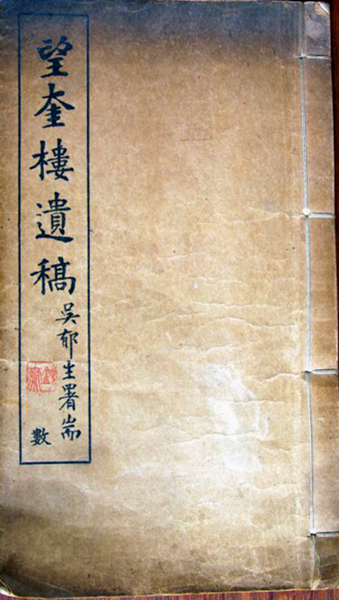 望奎樓遺稿
吳郁生署耑
數